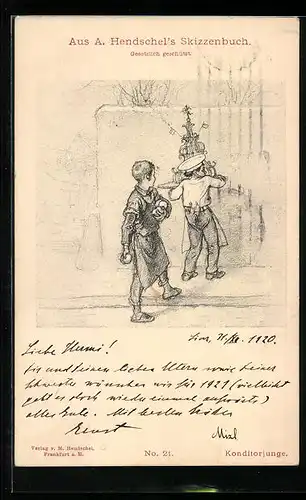 Aus A. Hendschel's Skizzenbuch.
Gesetzlich geschützt.
1920.
Liebe Hermi!
Dir und Deinen lieben Eltern sowie Deiner
Schwester wünschen wir für 1921 (vielleicht
geht es doch wieder einmal aufwärts)
alles Gute. Mit besten Grüßen
Ernst
Mizl
Verlag v. M. Hendschel,
Frankfurt a. M.
No. 21.
Konditorjunge.